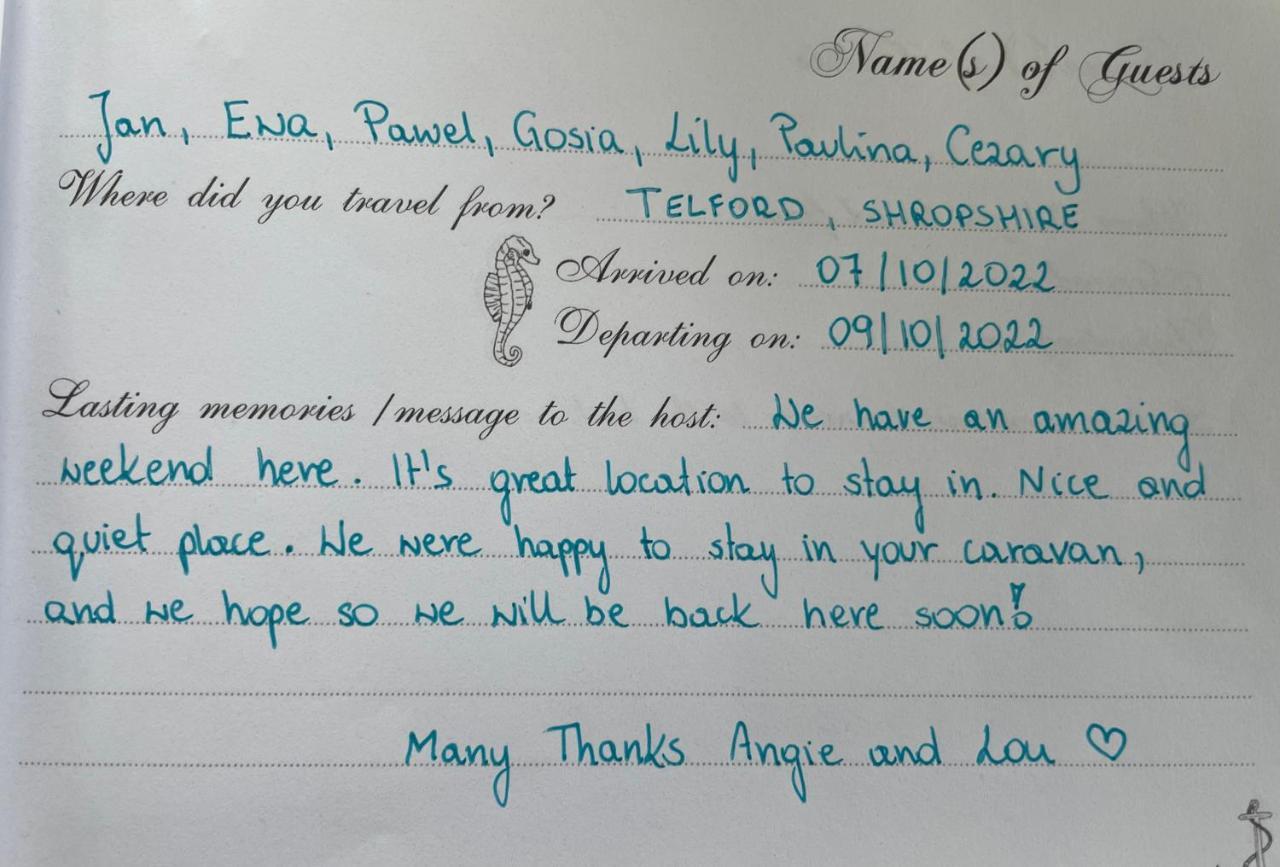 Name(s) of Guests
Jan, Ewa, Pawel, Gosia, Lily, Paulina, Cezary
Where did you travel from? TELFORD, SHROPSHIRE
Arrived on: 07/10/2022
Departing on: 09/10/2022
Lasting memories / message to the host: We have an amazing
weekend here. It's great location to stay in. Nice and
quiet place. We were happy to stay in your caravan,
and we hope so we will be back here soon!
Many Thanks Angie and Lou ♡